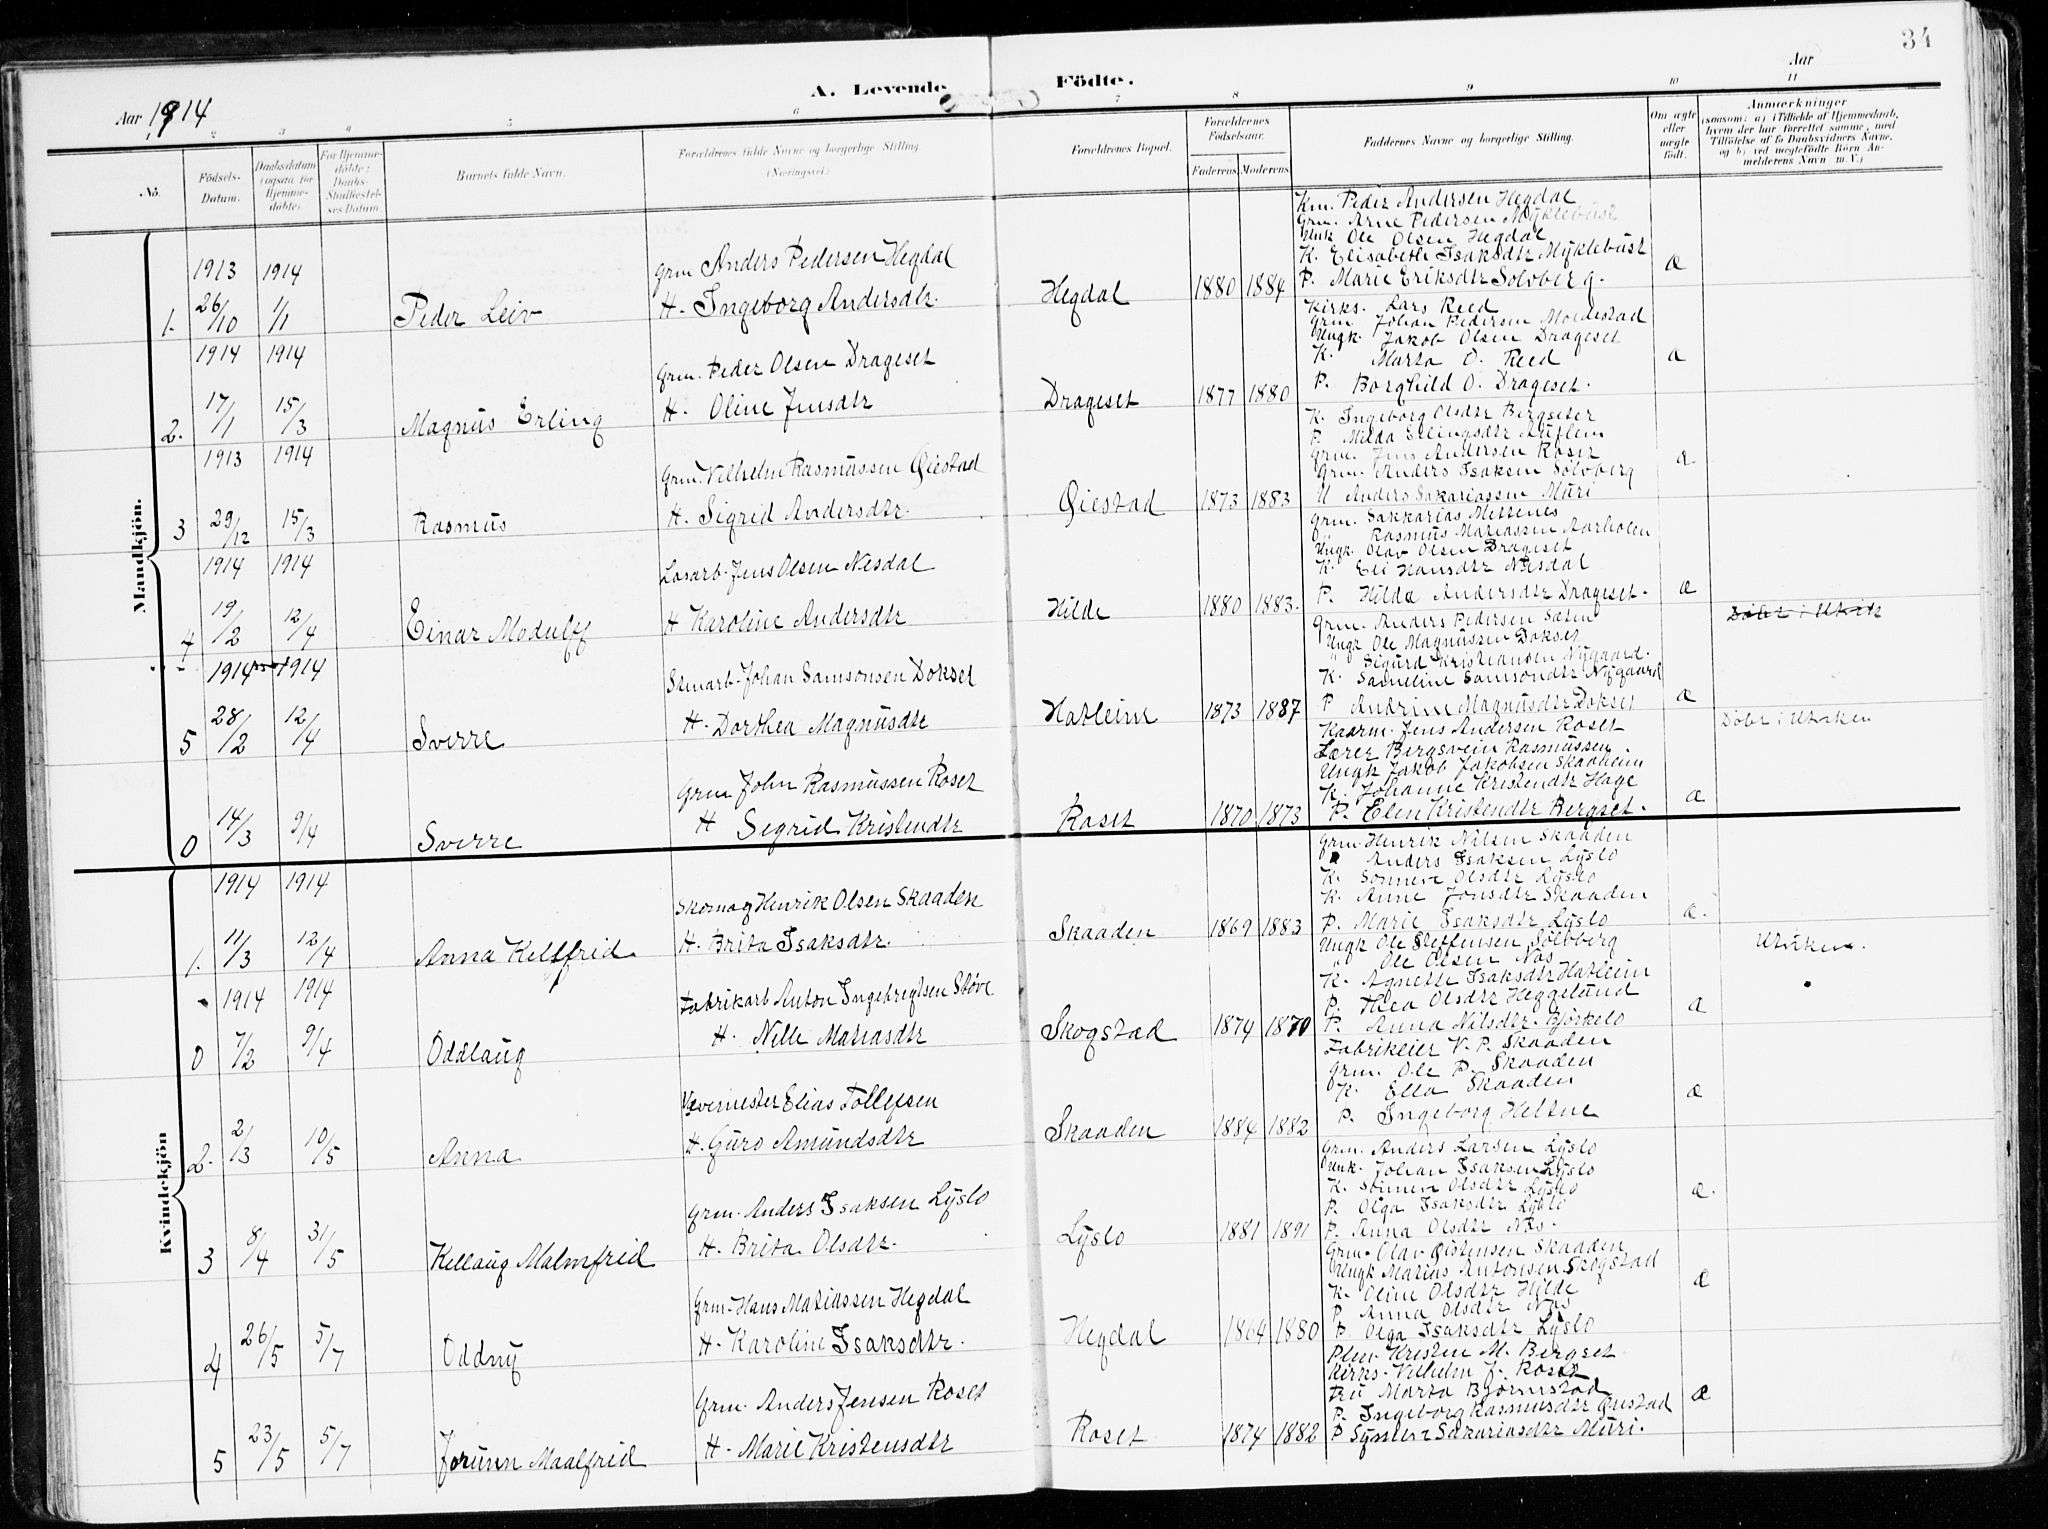 34
Aar 1914
A. Levende Födte.
Aar
2 3 4 5 6 7 8 9 10 11
No.
Födsels-Datum.
Daabsdatum (ogsaa for Hjemmedöbte).
For Hjemmedöbte: Daabs-Stadfæstelses Datum
Barnets fulde Navn.
Forældrenes fulde Navne og borgerlige Stilling (Næringsvei.)
Forældrenes Bopæl.
Forældrenes Födselsaar.
Faderens. Moderens.
Faddernes Navne og borgerlige Stilling.
Om ægte eller uægte födt.
Anmærkninger
(saasom: a) i Tilfælde af Hjemmedaab, hvem der har forrettet samme, med Tilföielse af to Daabsvidners Navne, og b) ved uægtefödte Börn Anmelderens Navn m. V.)
Mandkjön.
1913 1914
1. 26/10 1/1 Peder Leiv
Grm Anders Pedersen Hegdal
H. Ingeborg Andersdtr.
Hegdal 1880 1884
Km. Peder Andersen Hegdal
Grm. Arne Pedersen Myklebust
Unk Ole Olsen Hegdal
K. Elisabeth Isaksdtr Myklebust
P. Marie Eriksdtr Solvberg.
Æ
1914 1914
2. 17/1 15/3 Magnus Erling
Grm. Peder Olsen Drageset
H. Oline Jensdtr
Drageset 1877 1880
Kirks. Lars Reed
Grm. Johan Pedersen Moldestad
Ungk. Jakob Olsen Drageset
K. Marta O. Reed
P. Borghild O. Drageset.
æ
1913 1914
3 29/12 15/3 Rasmus
Grm. Vilhelm Rasmussen Øiestad
H. Sigrid Andersdtr.
Øiestad 1873 1883
K. Ingeborg Olsdtr Bergseter
P. Milda Ellingsdtr Auflem
Grm. Jens Andersen Roset
Grm. Anders Isaksen Solvberg
U Anders Sakariassen Muri
æ
1914 1914
4 19/2 12/4 Einar Modulff
Losarb. Jens Olsen Nesdal
H Karoline Andersdtr
Hilde 1880 1883.
Grm. Sakkarias Mittenes
" Rasmus Mariassen Aarholen
Ungk. Olav Olsen Drageset
K. Eli Hansdtr Nesdal
P. Hilda Andersdtr Drageset.
Æ
Döbt i Utvik
1914 1914
5 28/2 12/4 Sverre
Stenarb. Johan Samsonsen Dokset
H. Dorthea Magnusdtr
Hatleim 1873 1887
Grm. Anders Pedersen Sæten
Ungk Ole Magnussen Dokset
" Sigurd Kristiansen Nygaard.
K. Sameline Samsondtr Nygaard
P Andrine Magnusdtr Dokset
Æ
Döbt i Utviken
0 14/3 9/4 Sverre
Grm John Rasmussen Roset
H Segrid Kristendtr
Roset 1870 1873
Kaarm. Jens Andersen Roset
Lærer Bergsvein Rasmussen.
Ungk Jakob Jakobsen Skaaheim
K. Johanne Kristendtr Hage
P. Elen Kristendtr Bergset.
Æ
Kvindekjön
1914 1914
1. 11/3 12/4 Anna Kellfrid
Skomag Henrik Olsen Skaaden
H. Brita Isaksdtr.
Skaaden 1869 1883
Grm. Henrik Nilsen Skaaden
" Anders Isaksen Lyslo
K. Sonneve Olsdtr Lyslo
K. Anne Jonsdtr Skaaden
P. Marie Isaksdtr Lyslo
Æ.
Utviken.
1914 1914
0 7/2 9/4 Oddlaug
Fabrikarb Anton Ingebregtsen Støve
H. Nelle Matiasdtr
Skogstad 1874 1870
Ungk Ole Steffensen Solvberg
" Ole Olsen Nos
K. Agnethe Isaksdtr Hatleim
P. Thea Olsdtr Heggelund
P. Anna Nilsdtr. Bjørkelo
Æ
2. 2/3 10/5 Anna
Vævemester Elias Tollefsen
H. Guro Amundsdtr
Skaaden 1884 1882
Fabrikeier V. P. Skaaden
Grm. Ole P. Skaaden
K. Ella Skaaden
P. Ingeborg Heltne
Æ
3 8/4 31/5 Kellaug Malmfrid
Grm. Anders Isaksen Lyslo
H. Brita Olsdtr.
Lyslo 1881 1891
Grm. Anders Larsen Lyslo
Unk. Johan Isaksen Lyslo
K. Sonneve Olsdtr Lyslo
P. Olga Isaksdtr Lyslo
P. Anna Olsdtr Nos.
Æ.
4 26/5 5/7 Oddny
Grm. Hans Matiassen Hegdal
H. Karoline Isaksdtr.
Hegdal 1864 1880
Grm. Olav Øistensen Skaaden
Ungk Marius Antonsen Skogstad
K. Oline Olsdtr Hilde
P. Anna Olsdtr Nos
P. Olga Isaksdtr Lyslo
Æ
5 23/5 5/7 Jorunn Maalfrid
Grm. Anders Jensen Roset
H. Marie Kristensdtr
Roset 1874 1882
Kristen M. Bergset
Kirks. Vilhelm J. Roset
Fru Marta Bjørnstad
P. Ingeborg Rasmusdtr Øiestad
P Synneve Sakariasdtr Muri.
Æ